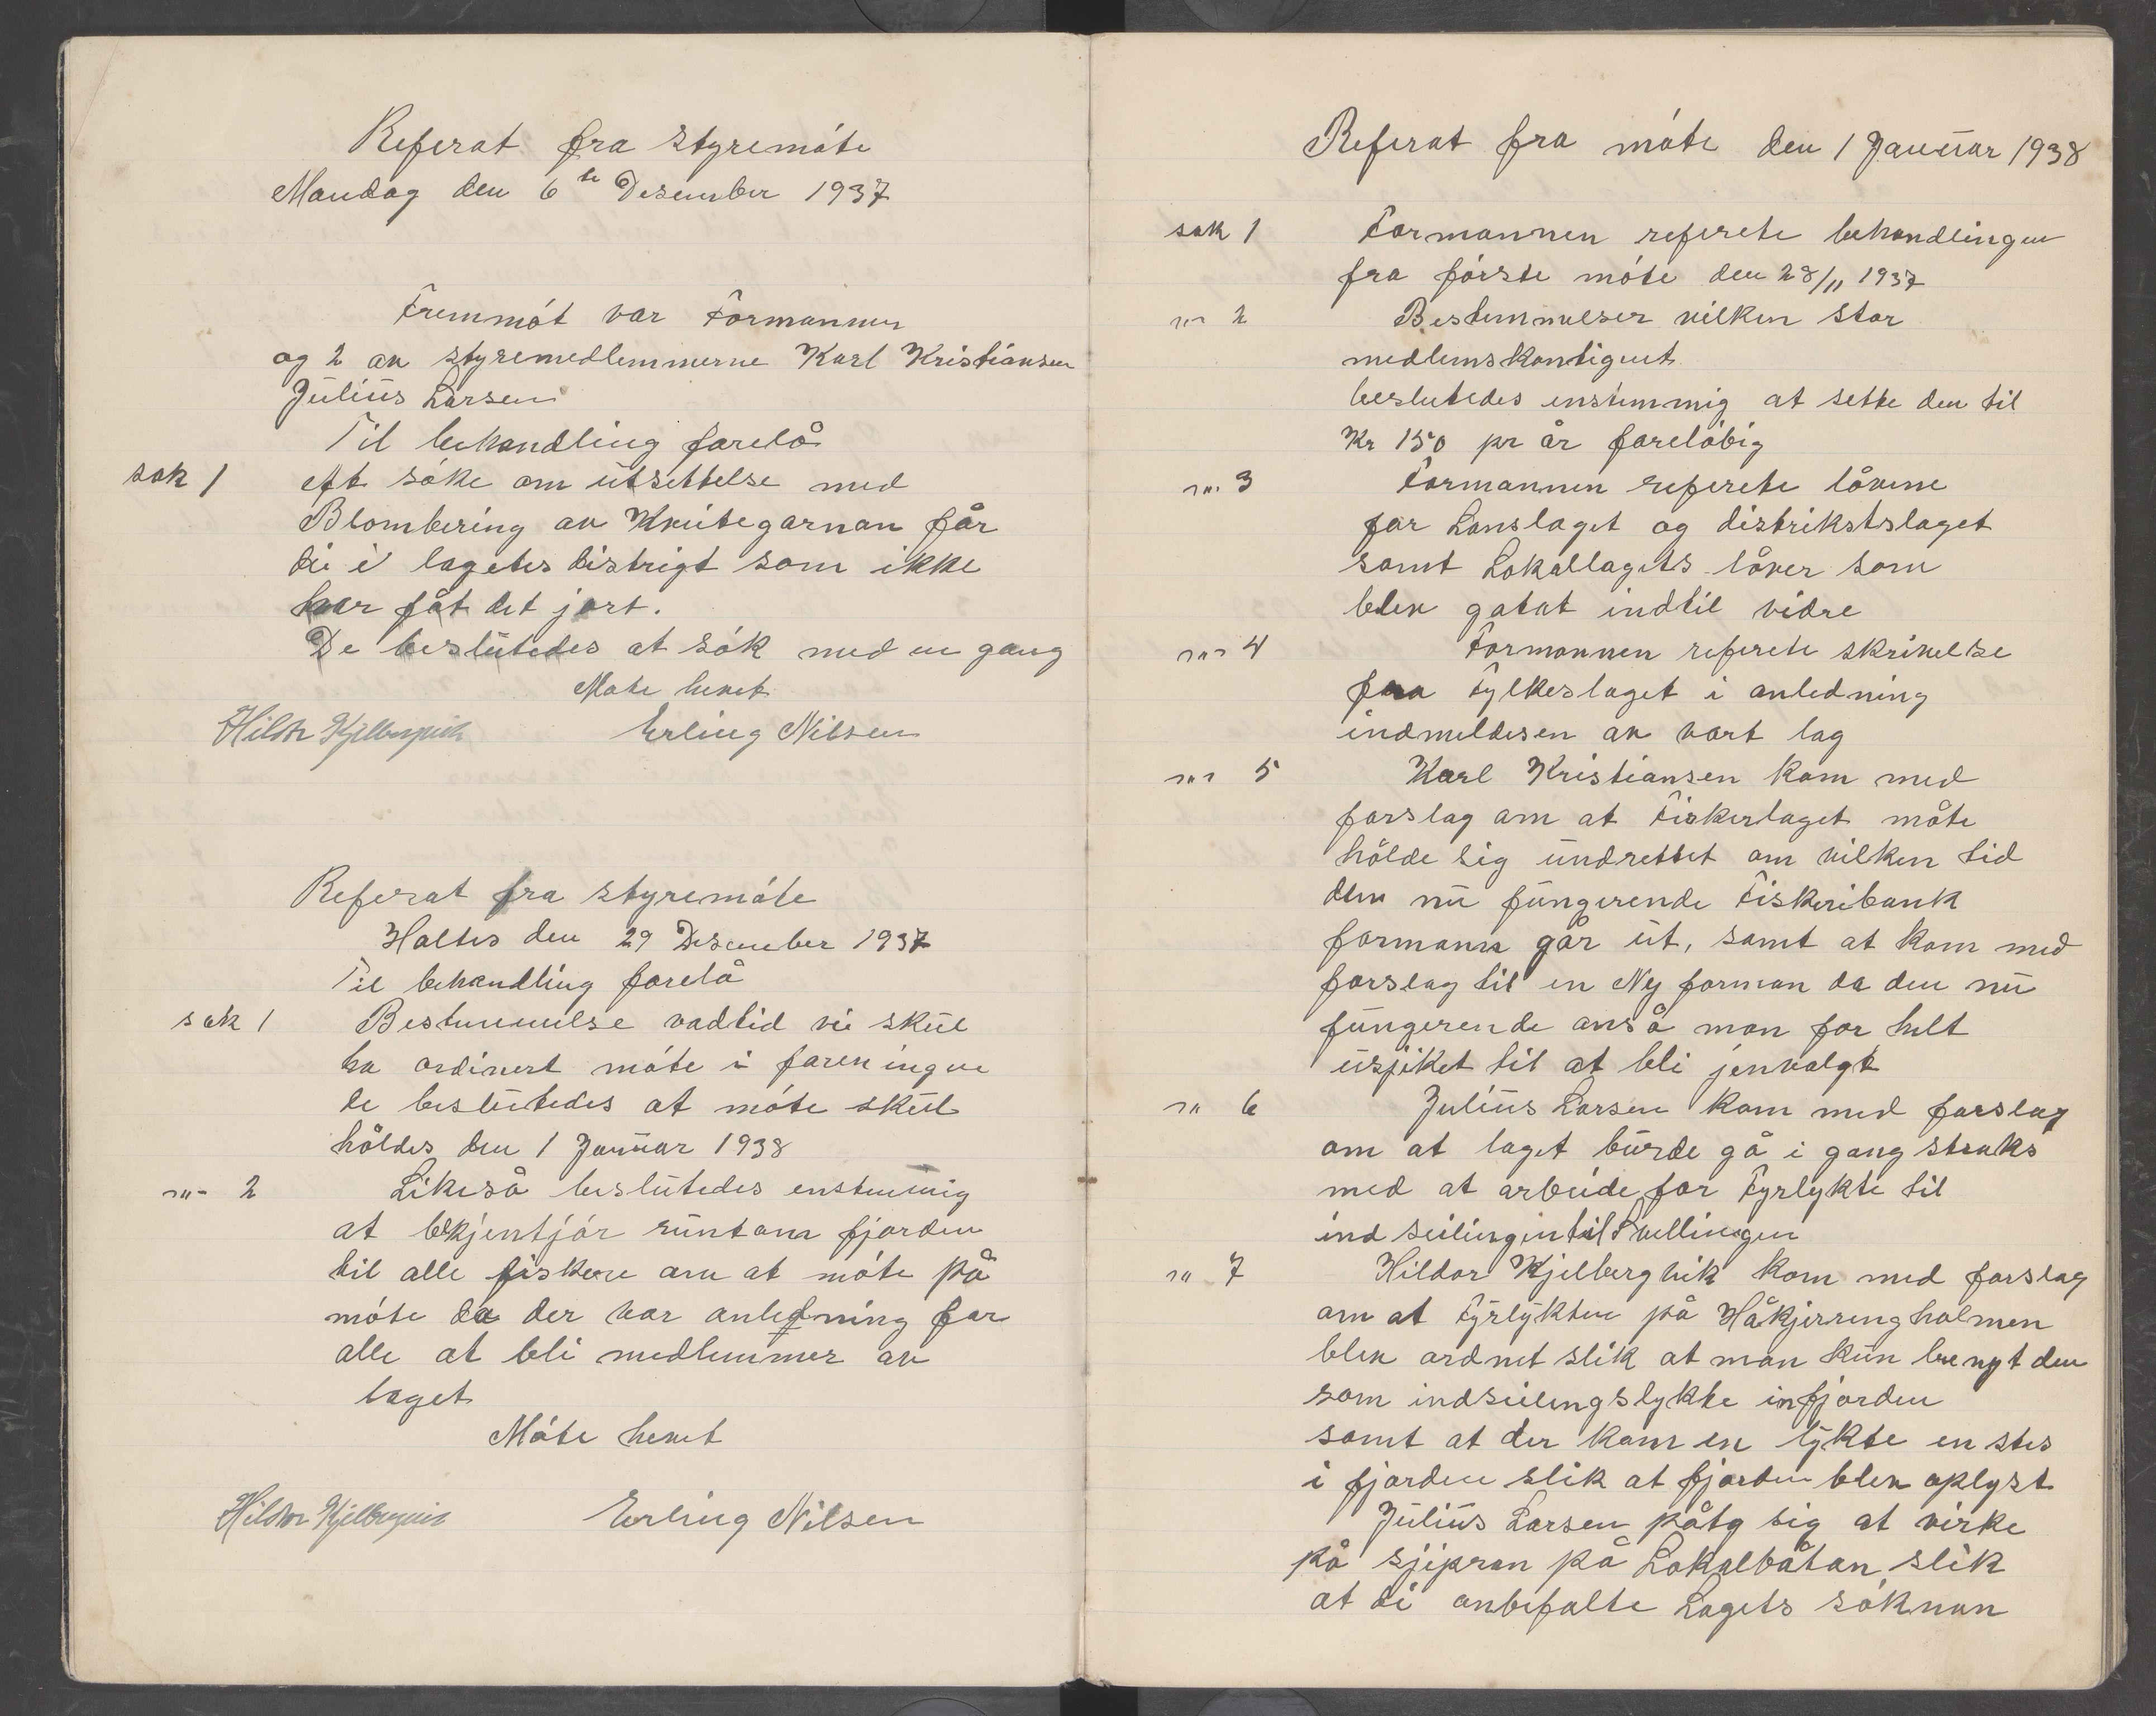 Referat fra styremöte
Mandag den 6te Desember 1937
Fremmöt var Formannen
og 2 av styremedlemmerne Karl Kristiansen
Julius Larsen
Til behandling forelå
sak 1 att söke om utsettelse med
Blombering av Knutegarnan får
di i lagetes distrigt som ikke
har fåt det jort.
De beslutedes at sök med en gang
Möte hevet
Hildor Kjelbergvik Erling Nilsen
Referat fra styremöte
Holtes den 29 Desember 1937
Til behandling forelå
sak 1 Bestemmelse vadtid vi skul
ha ordinert möte i foreningen
de beslutedes at möte skul
höldes den 1 Januar 1938
-"- 2 Likeså beslutedes enstemmig
at bekjentjör runtom fjorden
til alle fiskere om at möte på
möte da der var anledning for
alle at bli medlemmer av
laget
Möte hevet
Hildor Kjelbergvik Erling Nilsen
Referat fra möte den 1 Januar 1938
sak 1 Formannen referete behandlingen
fra förste möte den 28/11 1937
-"- 2 Bestemmelser vilken stor
medlemskontigent
beslutedes enstemmig at sette den til
Kr 150 pr år foreløbig
-"- 3 Formannen referete låvene
for Lanslaget og distrikstslaget
samt Lokallagets låver som
blev gatat indtil vidre
-"- 4 Formannen referete skrivelse
fra Fylkeslaget i anledning
indmeldesen av vart lag
-"- 5 Karl Kristiansen kom med
forslag om at Fiskerlaget måte
hölde sig undrettet om vilken tid
den nu fungerende Fiskeribank
formann går ut, samt at kom med
forslag til en Ny forman da den nu
fungerende anså man for helt
usjiket til at bli jenvalgt
-"- 6 Julius Larsen kom med forslag
om at laget burde gå i gang straks
med at arbeide for Fyrlykte til
indseilingin til Kvellingen
-"- 7 Hildor Kjelbergvik kom med forslag
om at Fyrlykten på Håkjerringholmen
blev ordnet slik at man kun benyt den
som indseilengslykte infjorden
samt at der kom en lykte en stes
i fjorden slik at fjorden blev oplyst
Julius Larsen påtg sig at virke
på sjipran på Lokalbåtan slik
at di anbefalte Lagets söknan